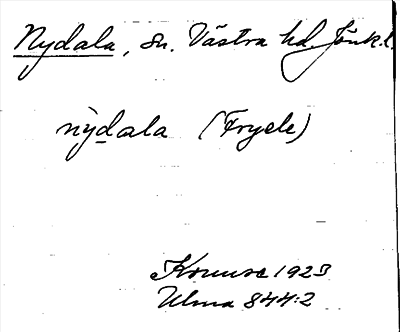 Nydala, sn. Västra hd Jönk.l.
nỳdala (Fryele)
1923
Ulma 844:2